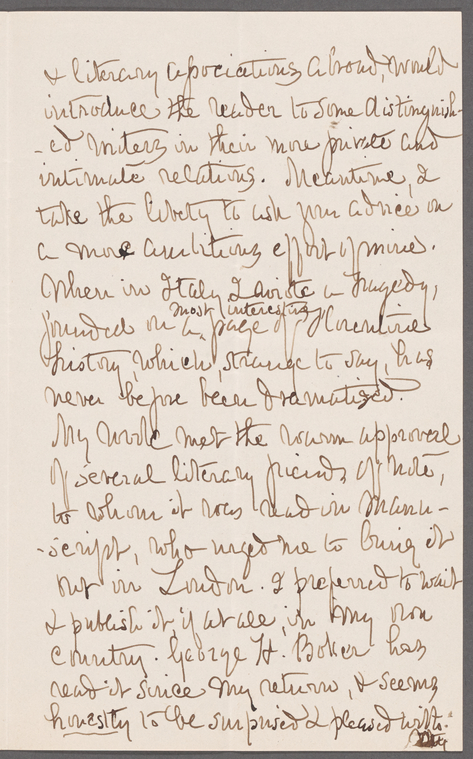 & literary associations abroad, would
introduce the reader to some distinguish-
-ed writers in their more private and
intimate relations. Meantime, I
take the liberty to ask your advice on
a more ambitious effort of mine.
When in Italy I wrote a tragedy,
founded on a most interesting page of Florentine
history, which, strange to say, has
never before been dramatized.
My work met the warm approval
of several literary friends of note,
to whom it was read in manu-
-script, who urged me to bring it
out in London. I preferred to wait
& publish it, if at all, in my own
country. George H. Boker has
read it since my return, & seems
honestly to be surprised & pleased with